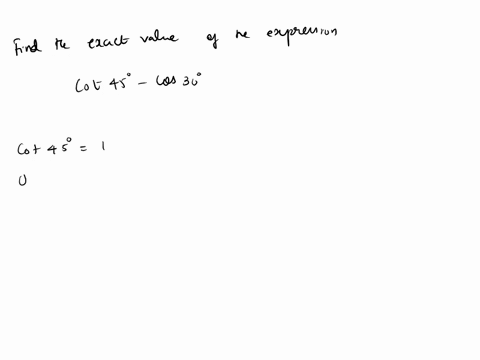 Find the exact value of the expression
Cot 45° - Cos 30°
Cot 45° = 1